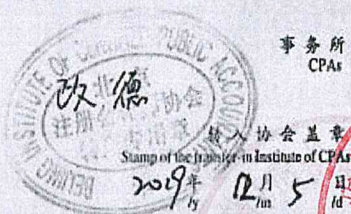 事务所
CPAs
BEIJING INSTITUTE OF CERTIFIED PUBLIC ACCOUNTANTS
北京
注册会计师协会
转入协会盖章
Stamp of the transfer-in Institute of CPAs
2019年12月5日
/y /m /d